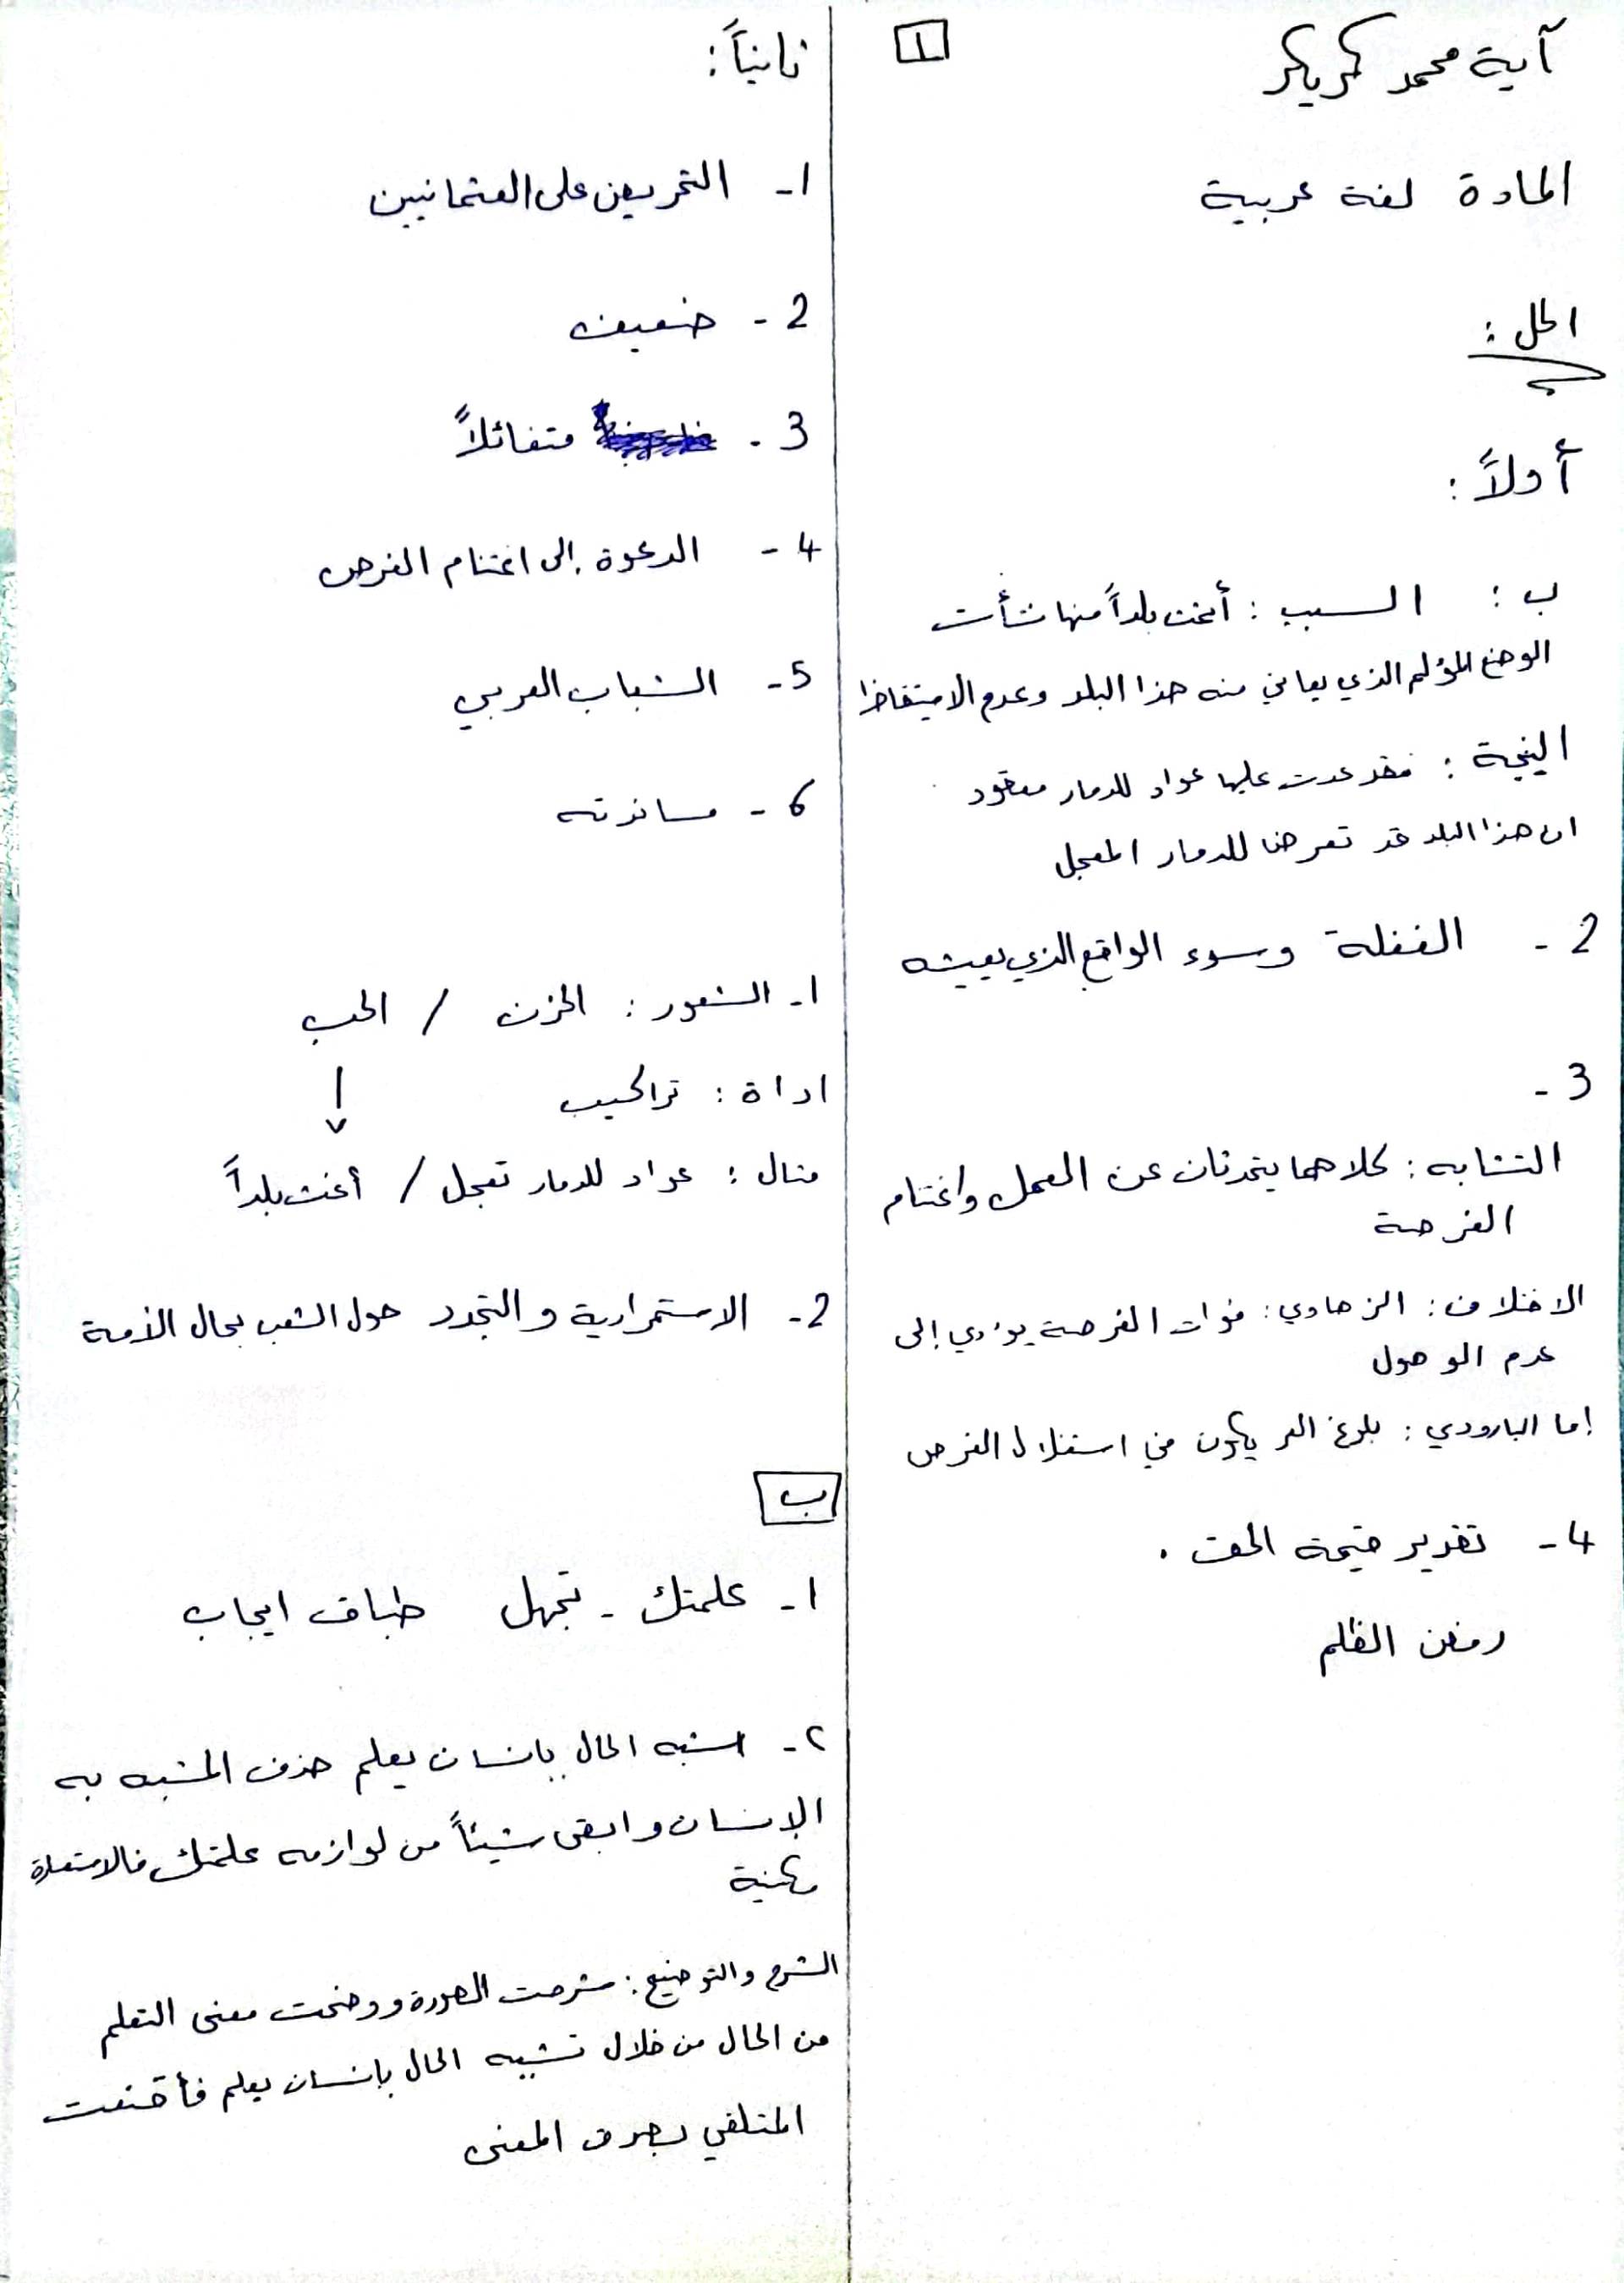 آية محمد كريكر
1
المادة لغة عربية
الحل :
أولاً :
ب : السبب : أغث بلداً منها نشأت
الوضع المؤلم الذي يعاني منه هذا البلد وعدم الاستيقاظ
النتيجة : فقد عدت عليها عواد للدمار
ان هذا البلد قد تعرض للدمار المعجل
2 - الغفلة وسوء الواقع الذي يعيشه
3 -
التشابه : كلاهما يتحدثان عن العمل واغتنام
الفرصة
الاختلاف : الزهاوي : فوات الفرصة يؤدي إلى
عدم الوصول
إما البارودي : بلوغ العز يكون في استغلال الفرص
4 - تقدير قيمة الحق .
رفض الظلم
ثانياً :
1 - التحريض على العثمانيين
2 - ضعيف
3 - متفائلاً
4 - الدعوة إلى اغتنام الفرص
5 - الشباب العربي
6 - مساندته
1 - الشعور : الحزن / الحب
اداة : تراكيب ↓
مثال : عواد للدمار تعجل / أغث بلداً
2 - الاستمرارية والتجدد حول الشعب بحال الأمة
ب
1 - علمتك - تجهل طباق ايجاب
٢ - شبه الحال بإنسان يعلم حذف المشبه به
الإنسان وابقى شيئاً من لوازمه علمتك فالاستعارة
مكنية
الشرح والتوضيح : شرحت الصورة ووضحت معنى التعلم
من الحال من خلال تشبيه الحال بإنسان يعلم فأقنعت
المتلقي بصدق المعنى